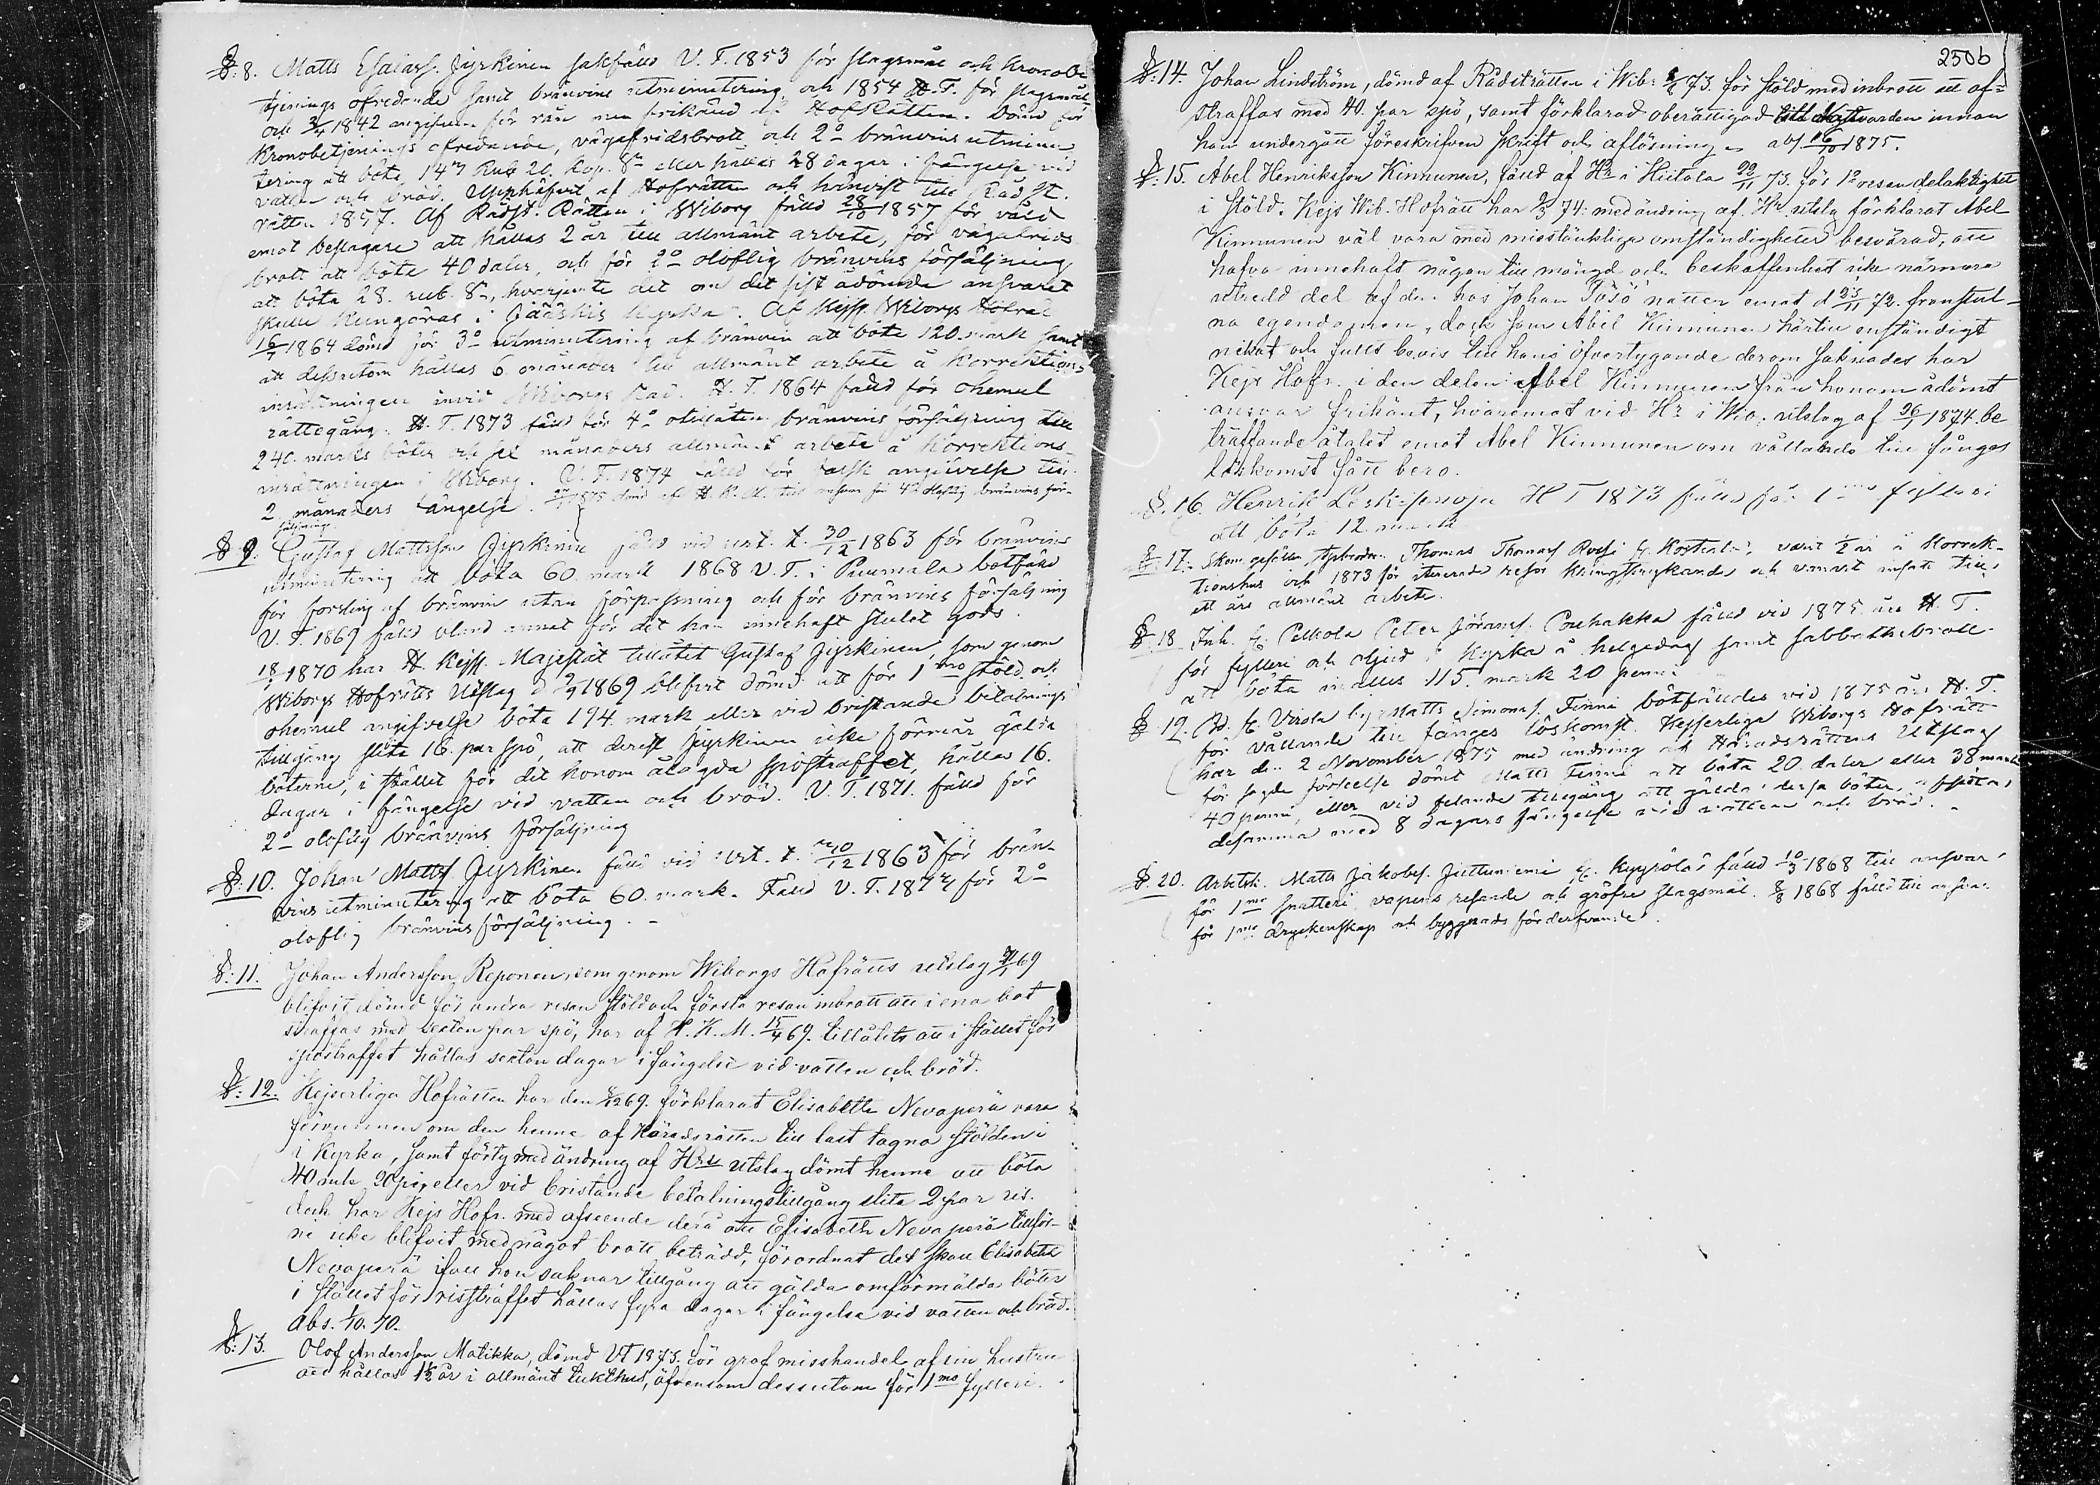 §:8. Matts Esaiass. Jyrkinen sakfälld V. T. 1853 för slagsmål och kronobe-
tjenings ofredande samt bränvins utminutering och 1854 H. T. för slagsmål
och 1842 angifven för rån men frikänd af HofRätten. Dömd för
kronobetjenings ofredande, vägafridsbrott och 2o bränvins utminu-
tering att böta 147 Rub 20. kop. Sr eller hållas 28 dagar i fängelse vid
vatten och bröd. Upphäfvit af Hofrätten och hänvist till Rådst.
rätten 1857. Af Rådst. Rätten i Wiborg fälld 28/10 1857 för våld
emot beslagare att hållas 2 år till allmänt arbete, för vägafrids
brott att böta 40 daler, och för 2o oloflig bränvins försäljning
att böta 28. rub. Sr, hvarjemte det om det sist ådömde ansvaret
skulle kungöras i Jääskis kyrka. Af Kejs. Wiborgs Hofrätt
1864 dömd för 3o utminutering af bränvin att böta 120 mark samt
att dessutom hållas 6 månader till allmänt arbete å Korrektions
inrättningen invid Wiborgs stad. H. T. 1864 fälld för ohemul
rättegång. H. T. 1873 fälld för 4o otillåten bränvins försäljning till
240. marks böter och månaders allmänt arbete å Korrektions-
inrättningen i Wiborg. V. T. 1874 fälld för falsk angifvelse till
2 månaders fängelse. 1875 dömd af H. K. M. till ansvar för 4o oloflig bränvins för-
säljning.
§ 9. Gustaf Mattsson Jyrkinen fälld vid urt. t. 30/12 1863 för bränvins
utminutering att böta 60 mark 1868 V. T. i Puumala botfälld
för forsling af bränvin utan förpassning och för bränvins försäljning
V. T. 1869 fälld bland annat för det han innehaft stulet gods.
1870 har H. Kejs. Majestät tillåtit Gustaf Jyrkinen, som genom
Wiborgs Hofrätts Utslag d 1869 blifvit dömd att för 1mo stöld och
ohemul angifvelse böta 194. mark eller vid bristande betalnings
tillgång slita 16. par spö, att derest Jyrkinen icke förmår gälda
böterne, i stället för det honom ålagda spöstraffet, hållas 16.
dagar i fängelse vid vatten och bröd. V. T. 1871. fälld för
2o oloflig bränvins försäljning
§:10. Johan Matts. Jyrkinen fälld vid urt. t. 1863 för brän-
vins utminutering att böta 60 mark. Fälld V. T. 1874 för 2o
oloflig bränvins försäljning. -
§:11. Johan Andersson Reponen, som genom Wiborgs Hofrätts utslag 69
blifvit dömd för andra resan stöld och första resan inbrott att i ena bot
straffas med sexton par spö, har af H. K. M. 15/4 69. tillåtits att i stället för
spöstraffet hållas sexton dagar i fängelse vid vatten och bröd.
§:12. Kejserliga Hofrätten har den 69. förklarat Elisabeth Nevaperä vara
förvunnen om den henne af Häradsrätten till last tagna stölden i
i kyrka, samt förty med ändring af Hrs utslag dömt henne att böta
40 mk 20 pi, eller vid bristande betalningstillgång slita 2 par ris.
dock har Kejs Hofr. med afseende derå att Elisabeth Nevaperä tillför-
ne icke blifvit med något brott beträdd, förordnat det skall Elisabeth
Nevaperä ifall hon saknar tillgång att gälda omförmälda böter
i stället för risstraffet hållas fyra dagar i fängelse vid vatten och bröd.
Abs. 70.
§:13. Olof Andersson Matikka, dömd VT 1873. för graf misshandel af sin hustru
att hållas 1 1/2 år i allmänt tukthus, äfvensom dessutom för 1mo fylleri.
2506
§:14. Johan Lindström, dömd af Rådsträtten i Wib: 73. för stöld med inbrott att af-
straffas med 40. par spö, samt förklarad oberättigad till nattvarden innan
han undergått föreskrifven skrift och aflösning. abs 1875.
§:15. Abel Henriksson Kinnunen, fälld af Hr i Hiitola 73. för 1o resan delaktighet
i stöld. Kejs Wib. Hofrätt har 74. med ändring af Hr utslag förklarat Abel
Kinnunen väl vara med misstänkliga omständigheter besvärad, att
hafva innehaft någon till mängd och beskaffenhet icke närmare
utredd del af den hos Johan Tösö natten emot d 23/11 72. frånstul-
na egendomen, dock som Abel Kinnunen härtill enständigt
nekat och fullt bevis till hans öfvertygande derom saknades har
Kejs Hofr. i den delen Abel Kinnunen från honom ådömt
ansvar frikänt, hvaremot vid Hr i Wio. utslag af 1874. be
träffande åtalet emot Abel Kinnunen om vållande till fånges
löskomst fått bero.
§:16. Henrik H T 1873 fälld för 1mo fylleri
att böta 12 mark
§:17. Thomas Thomass varit 1/2 år i Korrek-
tionshus och 1873 för itererade resor kringstrykande och vanart insatt till
ett års allmänt arbete.
§:18 Inh. fr. Pelkola Peter Göranss. Pouhakka fälld vid 1875 års H. T.
för fylleri och oljud i kyrka å helgedag samt sabbathsbrott
att böta inalles 115. mark 20 penni
§ 19. Virola by Matts Simonss. Finni botfälldes vid 1875 års H. T.
för vållande till fånges löskomst. Kejserliga Wiborgs Hofrätt
har den 2 November 1875 med ändring af Häradsrättens Utslag
för sagde förseelse dömt Matts Finni att böta 20. daler eller 38 mark
40 penni, eller vid felande tillgång att gälda dessa böter, afsitta
desamma med 8 dagars fängelse vid vatten och bröd. -
§ 20. Arbetsk. Matts Jakobss. Juttunieni fr. Kyyrölä fälld 10/3 1868 till ansvar
för 1mo snatteri vapens resande och gröfre slagsmål. 1868 fälld till ansvar
för 1mo dryckenskap och byggnads förderfvande.